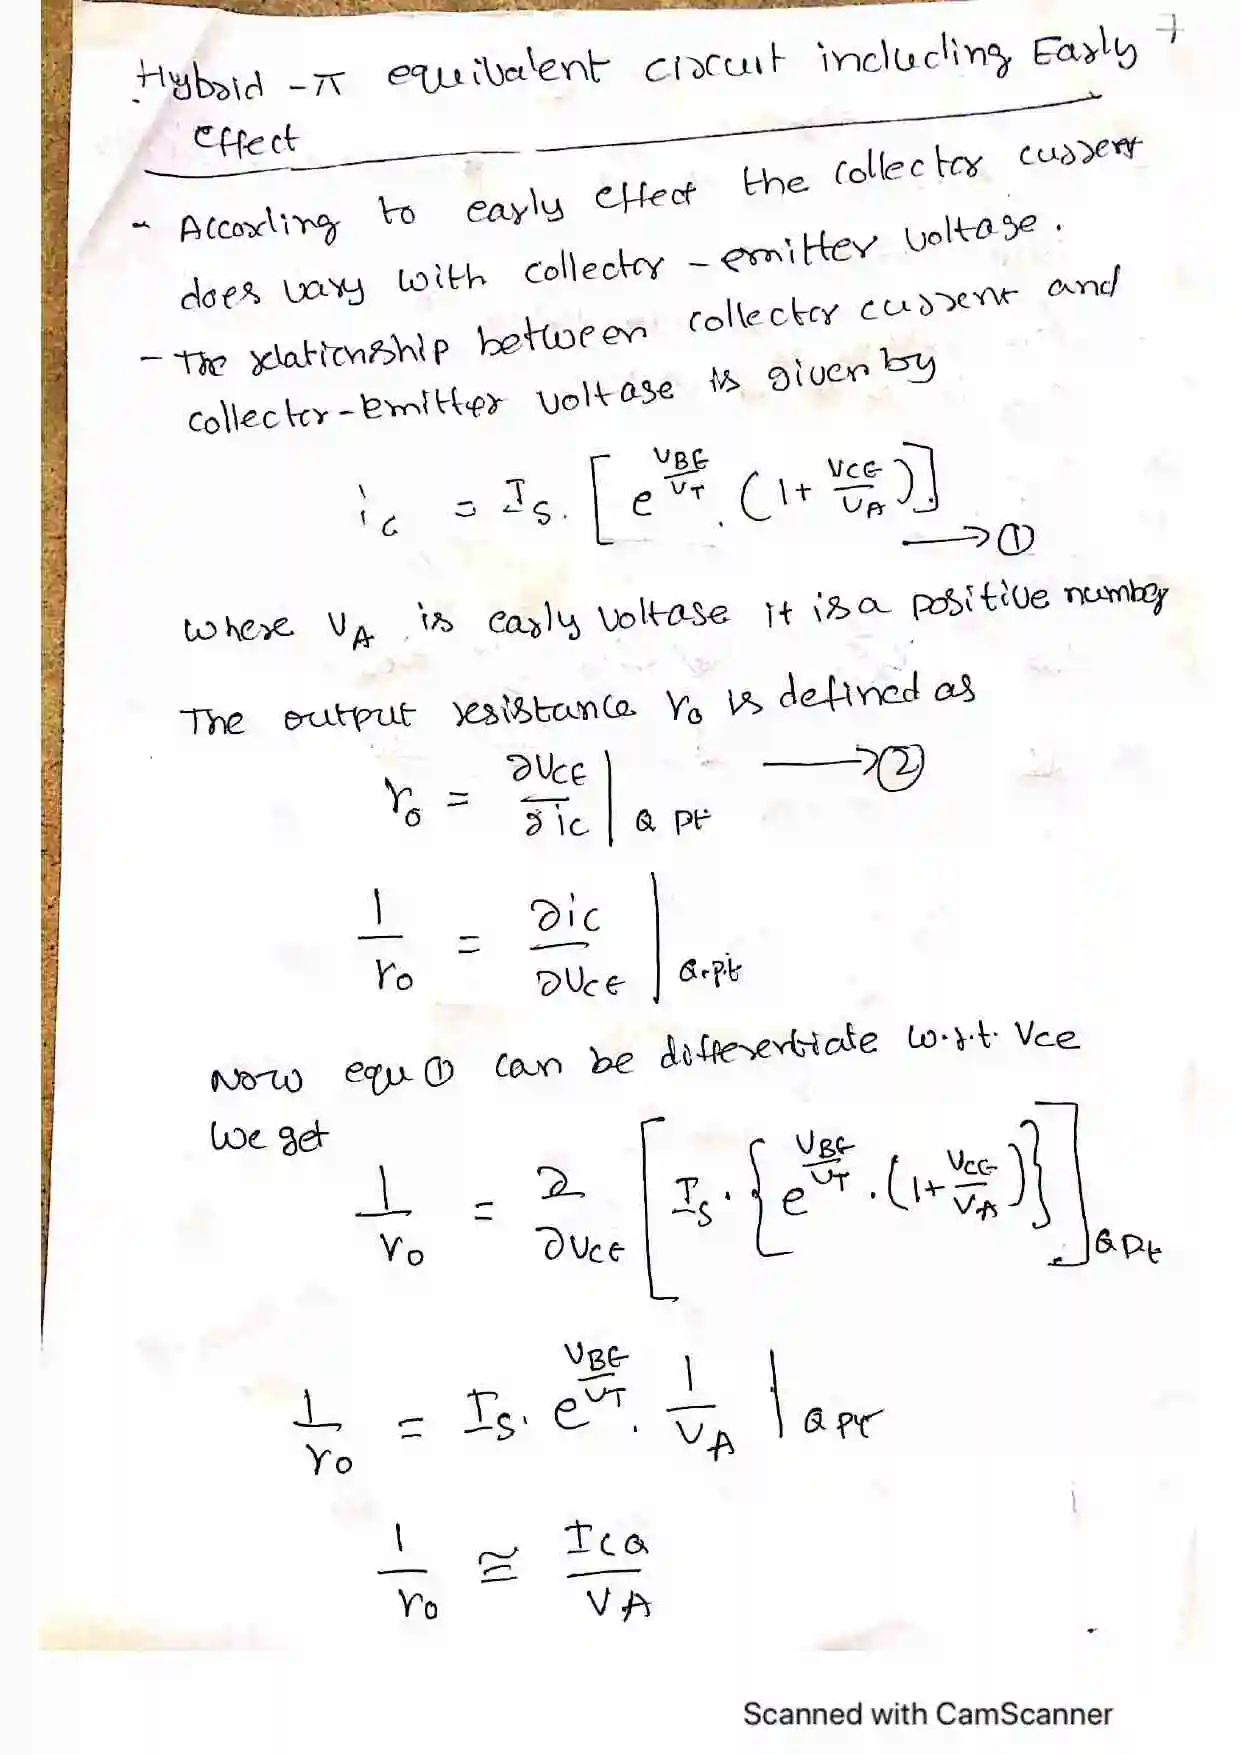 7
Hybrid - π equivalent circuit including Early
effect
- According to early effect the collector current
does vary with collector - emitter voltage.
- The relationship between collector current and
collector - Emitter voltage is given by
i_C = I_S. [e^{V_BE/V_T}. (1 + V_CE/V_A)] → ①
where V_A is early voltage it is a positive number
The output resistance r_o is defined as
r_o = ∂V_CE/∂i_C | Q pt → ②
1/r_o = ∂i_C/∂V_CE | Q.pt
Now equ ① can be differentiate w.r.t. Vce
we get
1/r_o = ∂/∂V_CE [I_S. {e^{V_BE/V_T}. (1 + V_CE/V_A)}] Q Pt
1/r_o = I_S. e^{V_BE/V_T}. 1/V_A | Q pt
1/r_o ≅ I_CQ/V_A
Scanned with CamScanner